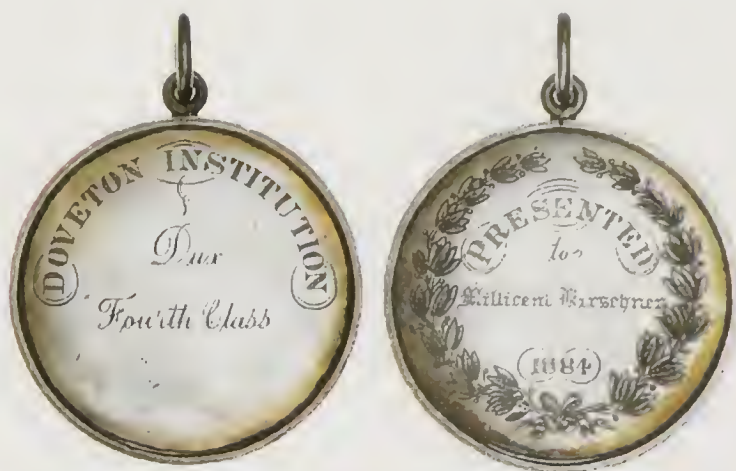 DOVETON INSTITUTION
Dux
Fourth Class
PRESENTED
to
Millicent Kirschner
1884